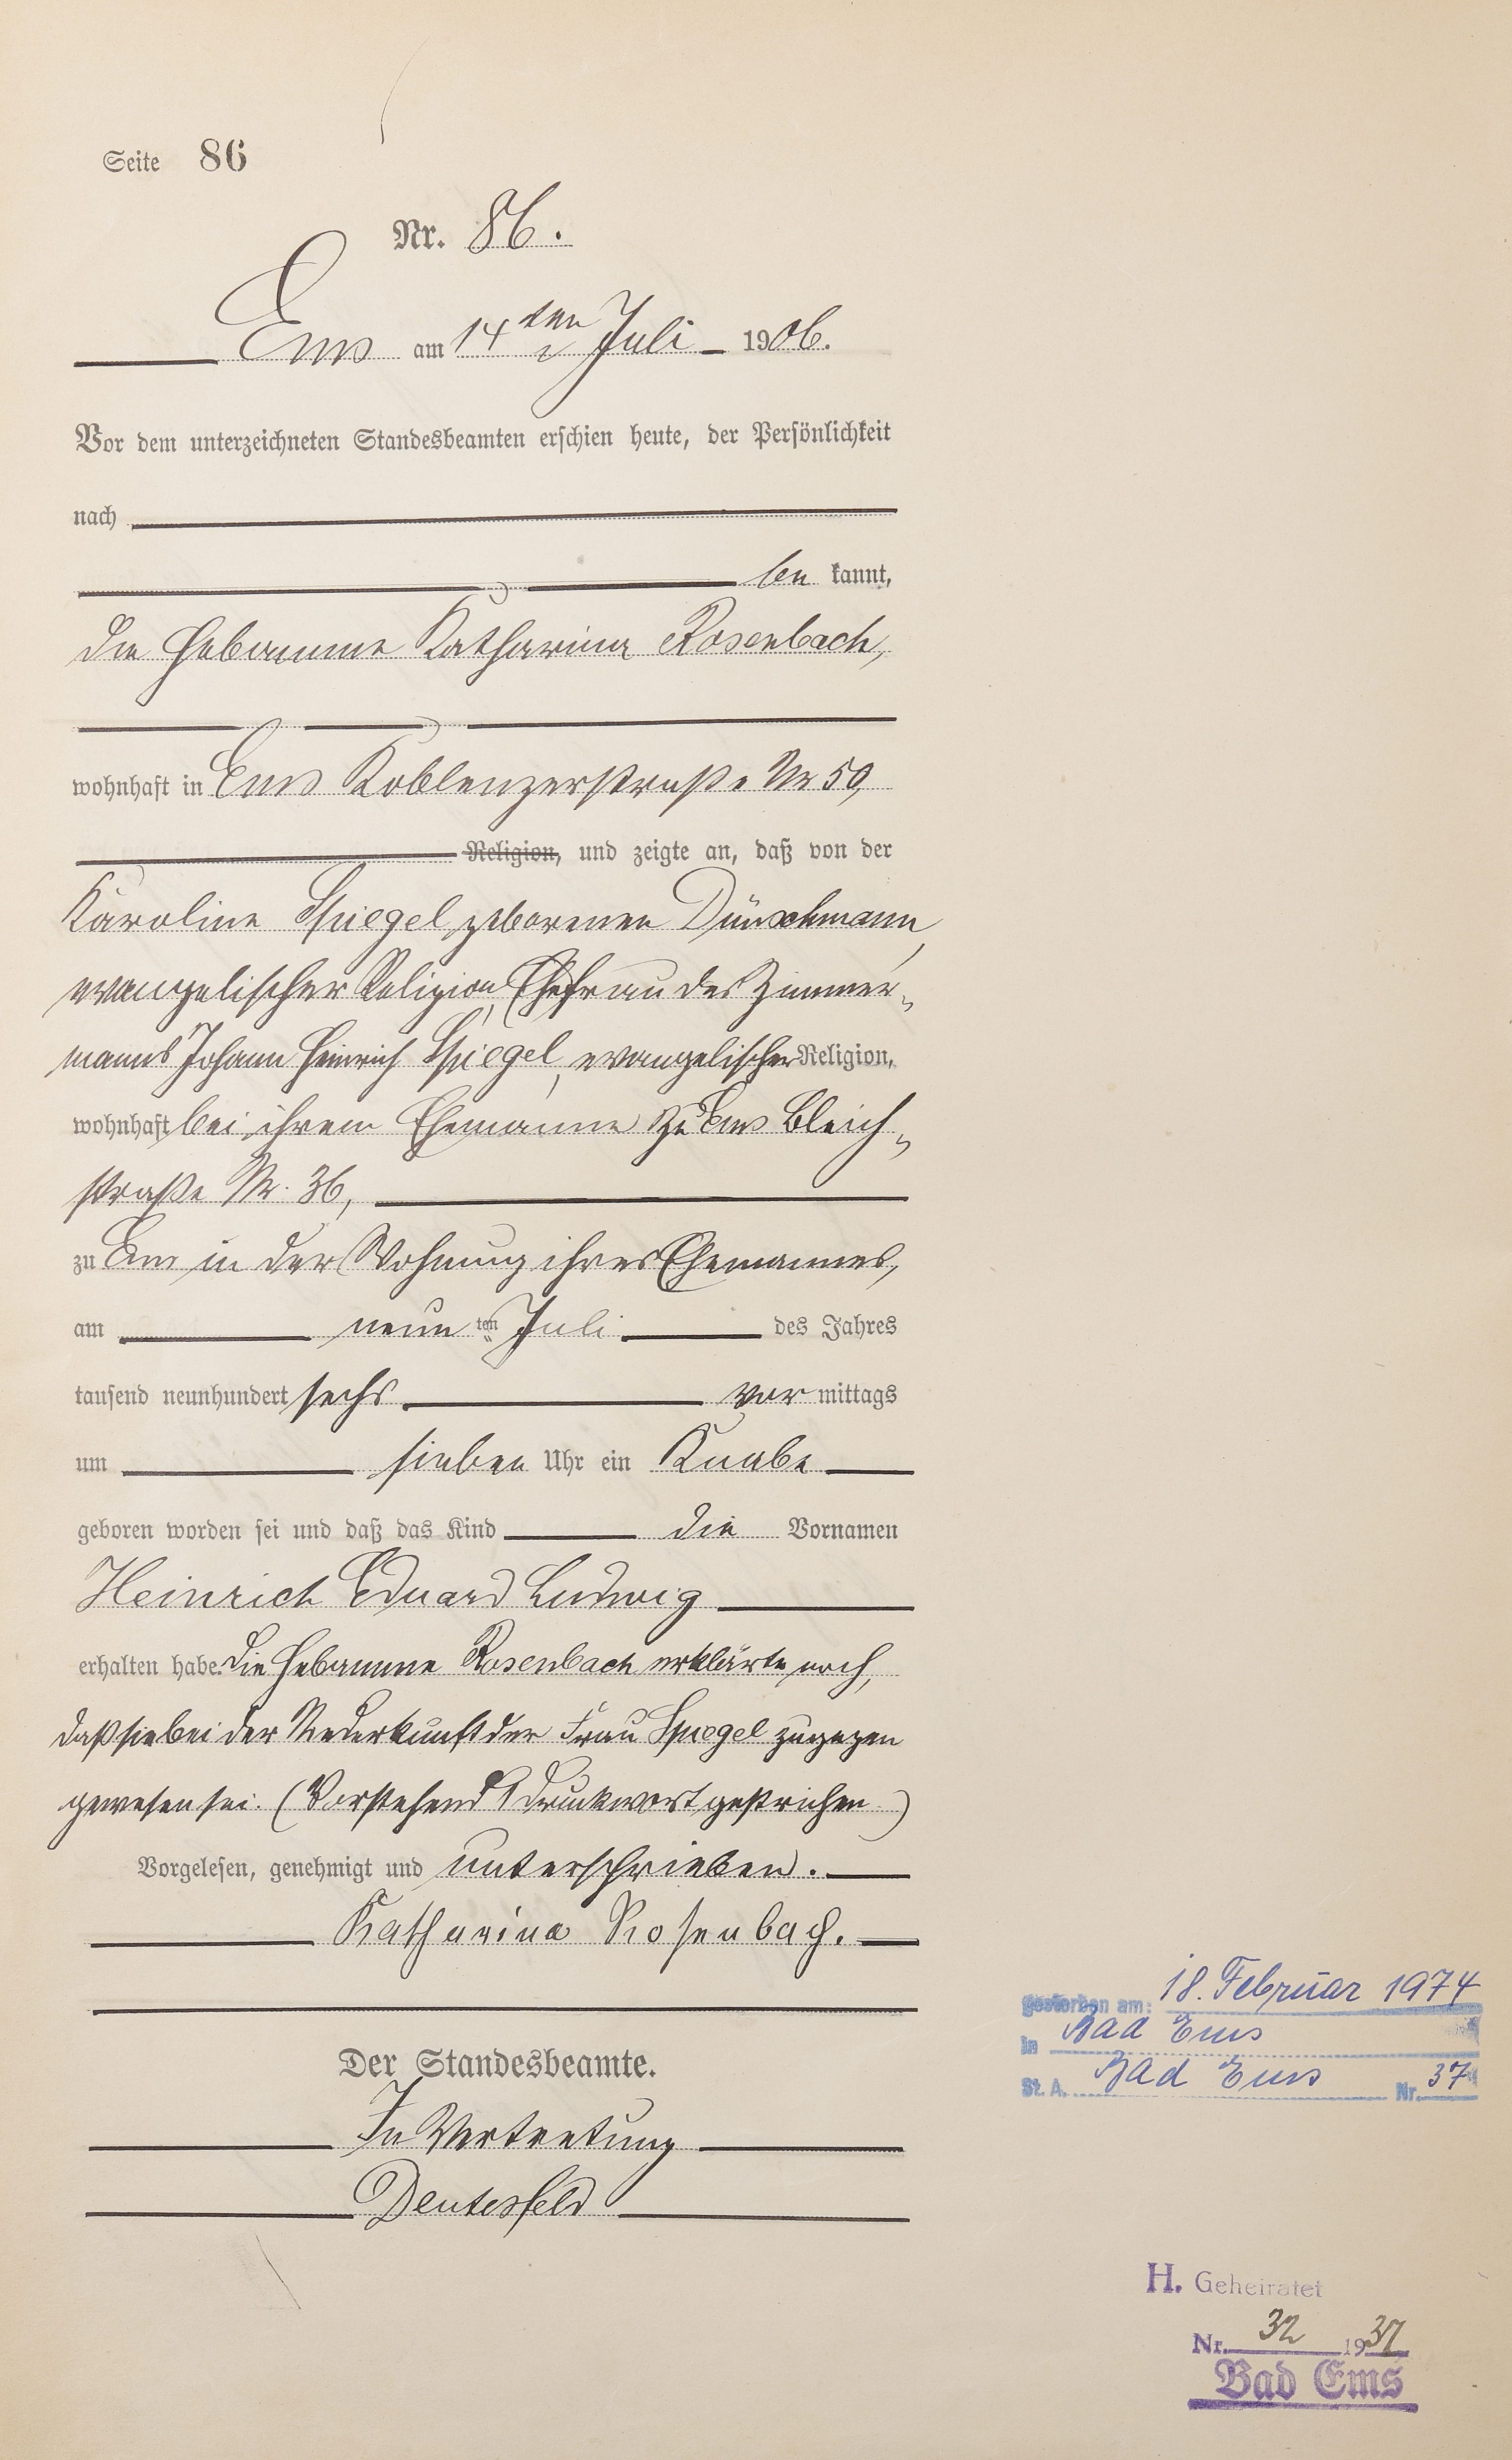 Seite 86
Nr. 86.
Ems am 14ten Juli 1906.
Vor dem unterzeichneten Standesbeamten erschien heute, der Persönlichkeit
nach
be kannt,
die Hebamme Katharina Rosenbach,
wohnhaft in Ems Koblenzerstraße Nr 50,
Religion, und zeigte an, daß von der
Karoline Spiegel, geborenen Dünschmann,
evangelischer Religion, Ehefrau des Zimmer-
manns Johann Heinrich Spiegel, evangelischer Religion,
wohnhaft bei ihrem Ehemanne zu Ems Bleich-
straße Nr. 36,
zu Ems in der Wohnung ihres Ehemannes,
am neun ten Juli des Jahres
tausend neunhundert sechs vor mittags
um sieben Uhr ein Knabe
geboren worden sei und daß das Kind die Vornamen
Heinrich Eduard Ludwig
erhalten habe. Die Hebamme Rosenbach erklärte noch,
daß sie bei der Niederkunft der Frau Spiegel zugegen
gewesen sei. (Vorstehend 1 Druckwort gestrichen.)
Vorgelesen, genehmigt und unterschrieben.
Katharina Rosenbach.
Der Standesbeamte.
In Vertretung
gestorben am: 18. Februar 1974
in Bad Ems
St. A. Bad Ems Nr. 37
H. Geheiratet
Nr. 32 1937
Bad Ems